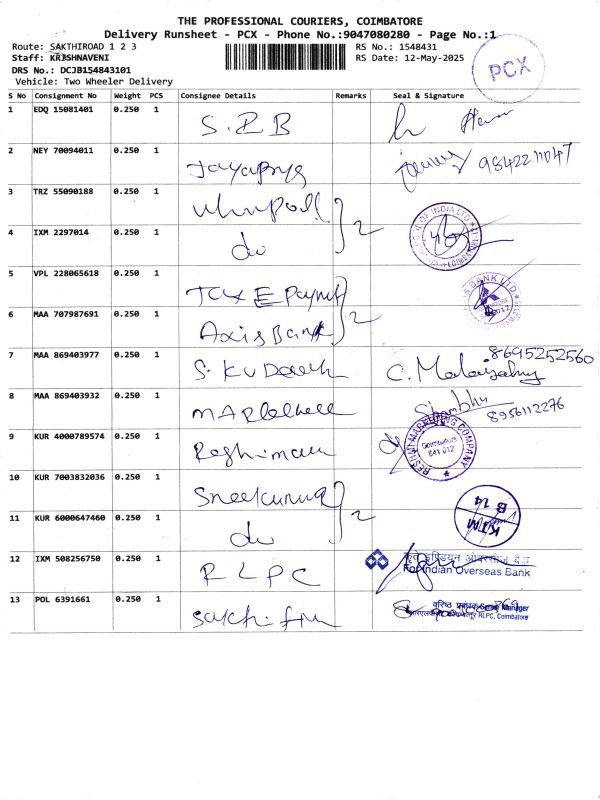 THE PROFESSIONAL COURIERS, COIMBATORE
Delivery Runsheet - PCX - Phone No.:9047080280 - Page No.:1
Route: SAKTHIROAD 1 2 3
RS No.: 1548431
Staff: KRISHNAVENI
RS Date: 12-May-2025
DRS No.: DCJB154843101
Vehicle: Two Wheeler Delivery
PCX
S No Consignment No Weight PCS Consignee Details Remarks Seal & Signature
1 EDQ 15081401 0.250 1
2 NEY 70094011 0.250 1
3 TRZ 55090188 0.250 1 2
4 IXM 2297014 0.250 1 do
OF INDIA LTD
5 VPL 228065618 0.250 1 Tax E Paymt 2
BANK LTD
6 MAA 707987691 0.250 1 Axis Bank
7 MAA 869403977 0.250 1 8695252560
8 MAA 869403932 0.250 1 Shambhu 8956112276
9 KUR 4000789574 0.250 1
RESHMI MARKETING COMPANY
Coimbatore
641 012
10 KUR 7003832036 0.250 1 2
11 KUR 6000647460 0.250 1 do
KTM
B 14
12 IXM 508256750 0.250 1 RLPC
कृते इण्डियन ओवरसीज बैंक
For Indian Overseas Bank
13 POL 6391661 0.250 1
वरिष्ठ प्रबंधक Manager
RLPC, Coimbatore